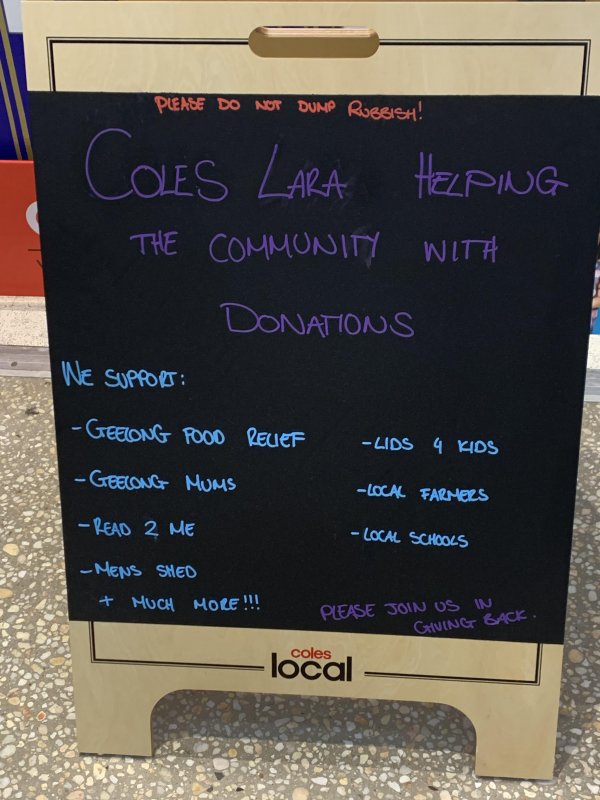 PLEASE DO NOT DUMP RUBBISH!
COLES LARA HELPING
THE COMMUNITY WITH
DONATIONS
WE SUPPORT:
- GEELONG FOOD RELIEF
- GEELONG MUMS
- READ 2 ME
- MENS SHED
+ MUCH MORE!!!
- LIDS 4 KIDS
- LOCAL FARMERS
- LOCAL SCHOOLS
PLEASE JOIN US IN
GIVING BACK.
coles
local